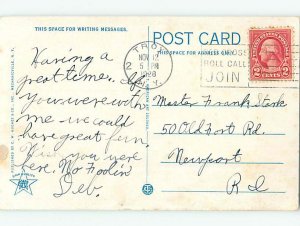 THIS SPACE FOR WRITING MESSAGES.
Having a
great time. If
you were with
me - we could
have great fun.
Wish you were
here. No Foolin'
Deb.
POST CARD
THIS SPACE FOR ADDRESS
TROY
NOV 12
5 PM
1926
N.Y.
2
ROLL CALL
JOIN
2 CENTS 2
Master Frank Stork
50 Old Fort Rd.
Newport
R I